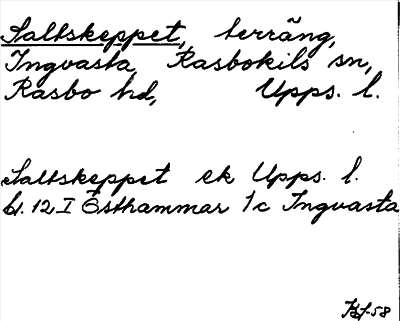 Saltskeppet, terräng,
Ingvasta, Rasbokils sn,
Rasbo hd, Upps. l.
Saltskeppet ek Upps. l.
bl. 12 I Östhammar 1c Ingvasta